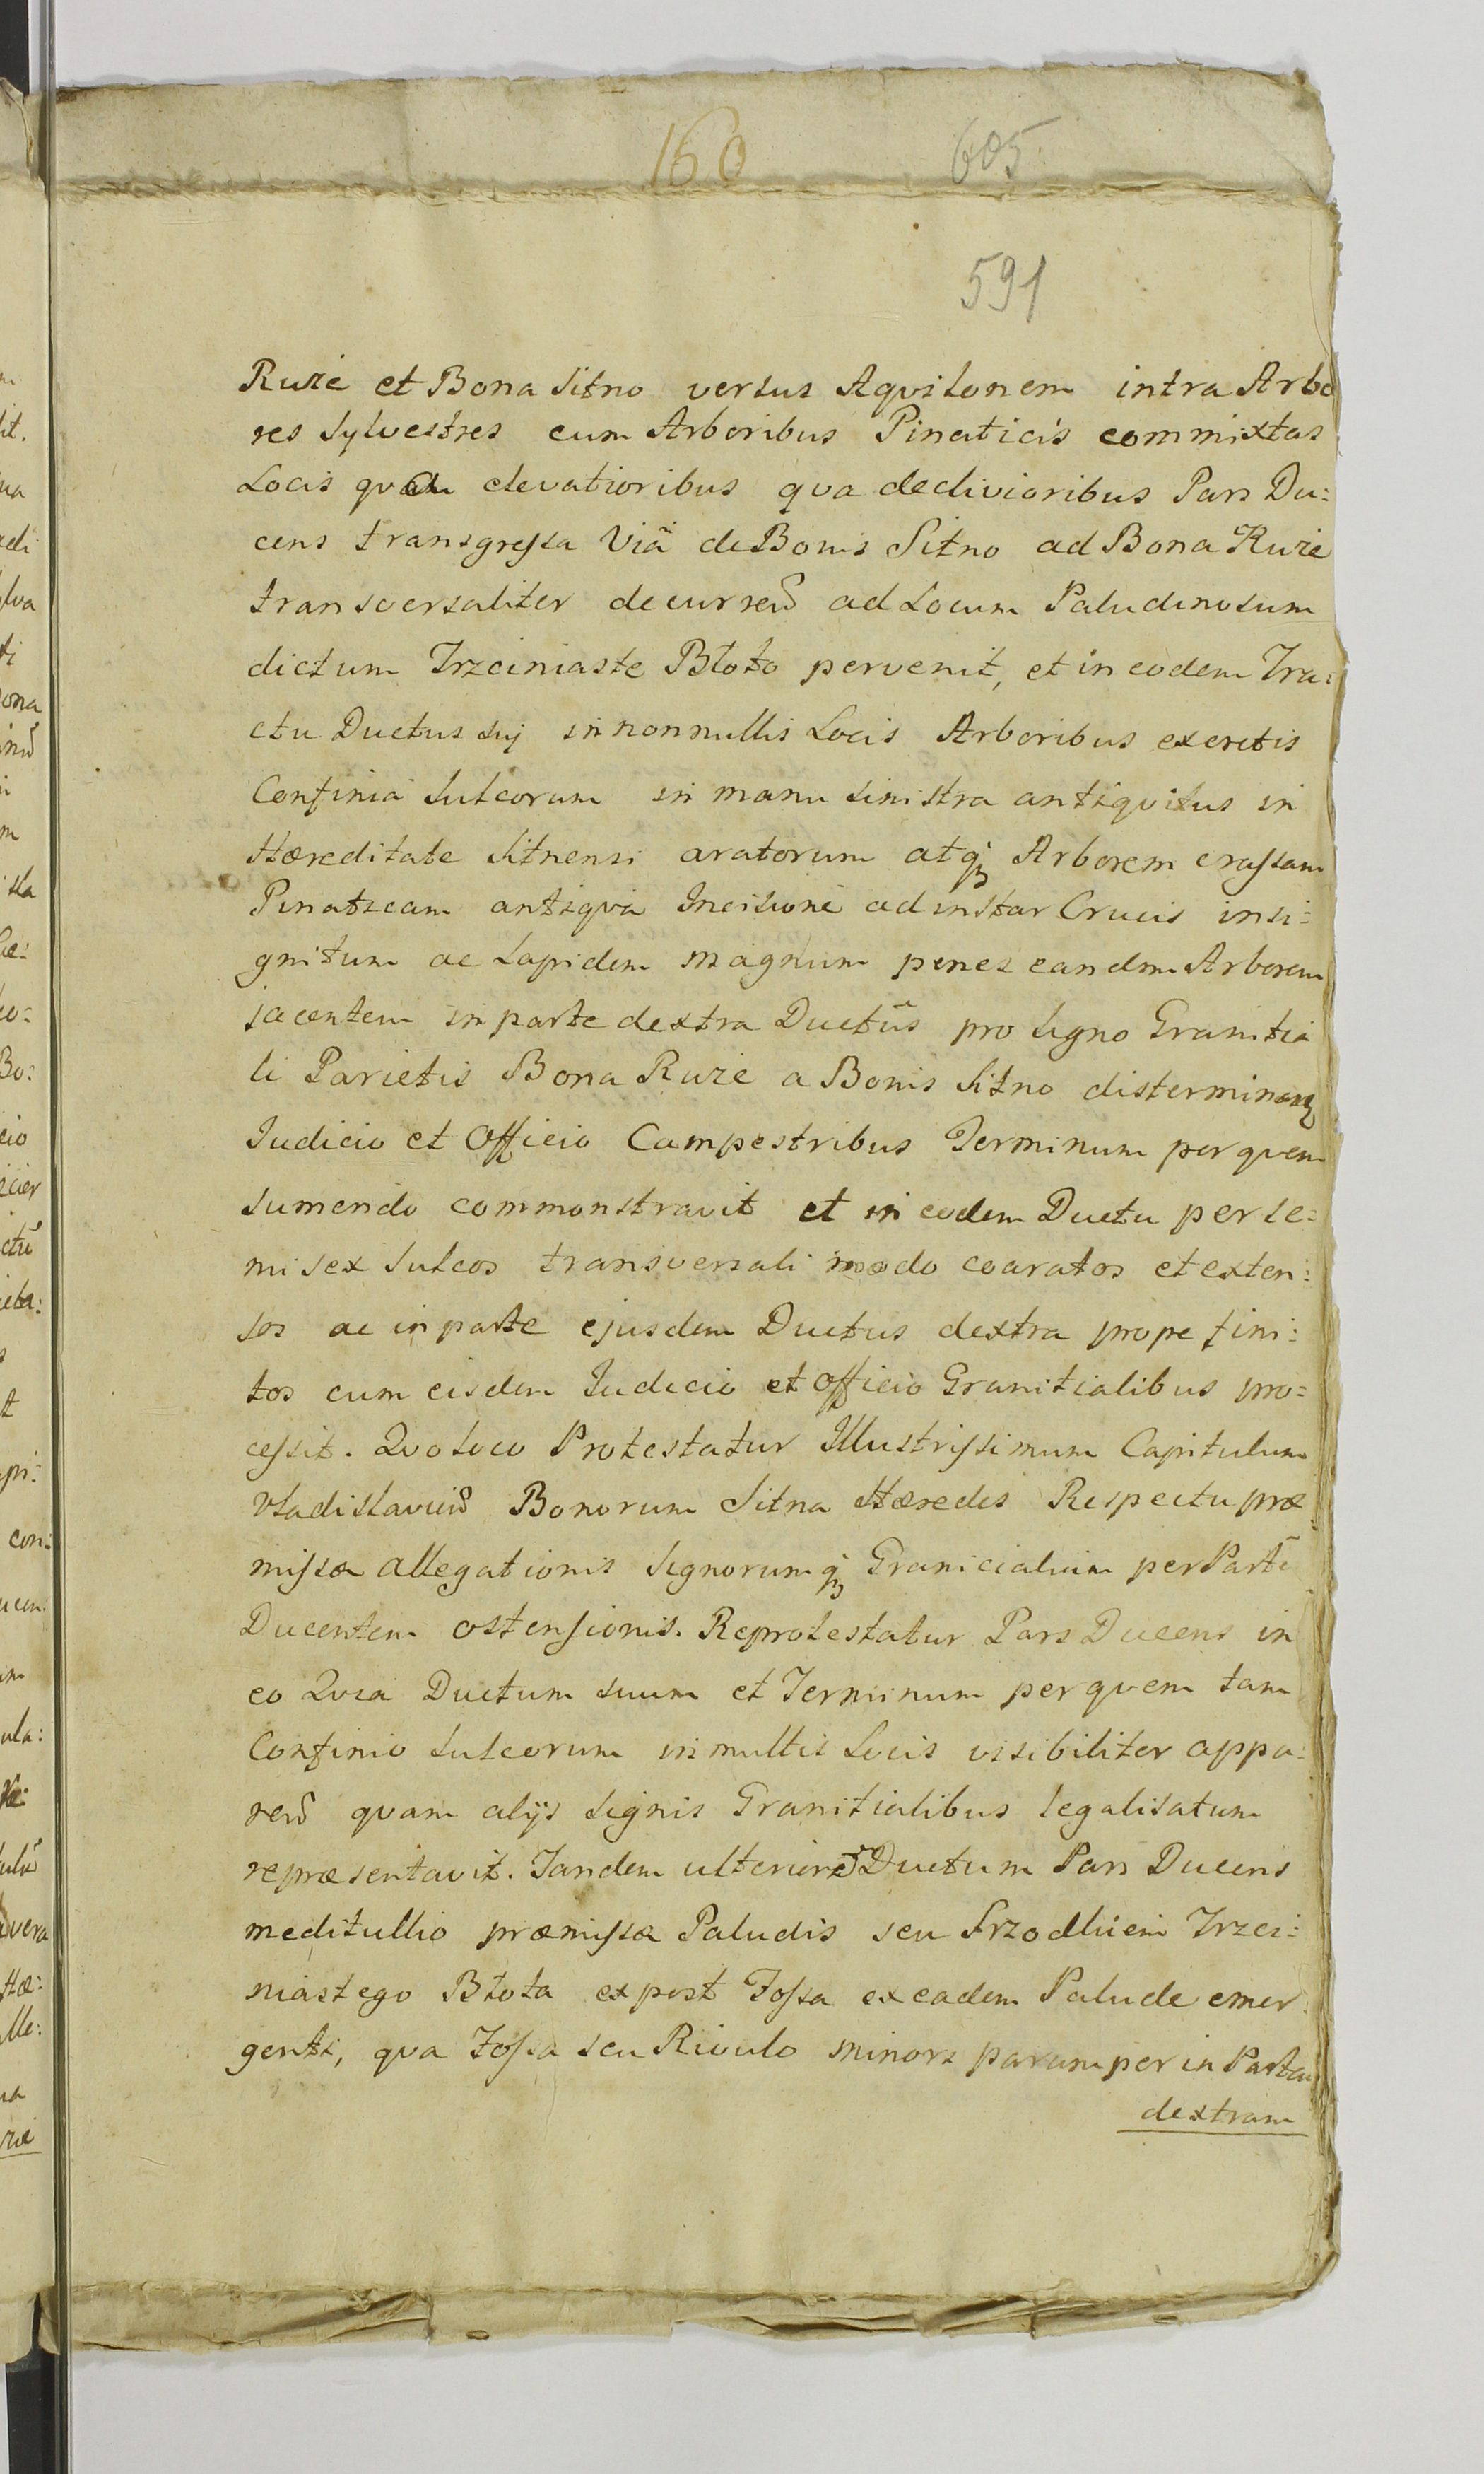 160
605
591
Ruże et Bona Sitno versus Aqvilonem intra Arbo
res Sylvestres cum Arboribus Pinaticis commixtas
Locis qva elevatioribus qva declivioribus Pars Du:
cens transgreſsa Viã de Bonis Sitno ad Bona Ruże
transversaliter decurreñ ad Locum Paludinosum
dictum Trzciniaste Błoto pervenit, et in eodem Tra:
ctu Ductus sui in nonnullis Locis Arboribus excretis
Confinia Sulcorum in manu sinistra antiqvitus in
Hæreditate Sitnensi aratorum atqꝫ Arborem craſsam
Pinaticam antiqva Incisione ad instar Crucis insi:
gnitum ac Lapidem magnum penes eandem Arborem
jacentem in parte dextra Ductus pro Signo Granitia
li Parietis Bona Ruże a Bonis Sitno disterminan
Judicio et Officio Campestribus Terminum per quem
sumendo commonstravit et in eodem Ductu per se:
mi sex Sulcos transversali modo coaratos et exten:
sos ac in parte ejusdem Ductus dextra prope fini:
tos cum eisdem Judicio et Officio Granitialibus pro:
ceſsit. Qvo Loco Protestatur Illustriſsimum Capitulum
Vladislavieñ Bonorum Sitna Hæredes Respectu præ
miſsæ allegationis Signorumqꝫ Granicialium per Partẽ
Ducentem ostensionis. Reprotestatur Pars Ducens in
eo Qvia Ductum suum et Terminum per qvem tam
Confinio Sulcorum in multis Locis visibiliter appa:
reñ qvam alijs Signis Granitialibus legalisatum
repræsentavit. Tandem ulteriorẽ Ductum Pars Ducens
meditullio præmiſsæ Paludis seu Srzodkiem Trzci:
niastego Błota ex post Foſsa ex eadem Palude emer:
genti, qva Foſsa seu Rivulo minori parumper in Partem
dextram